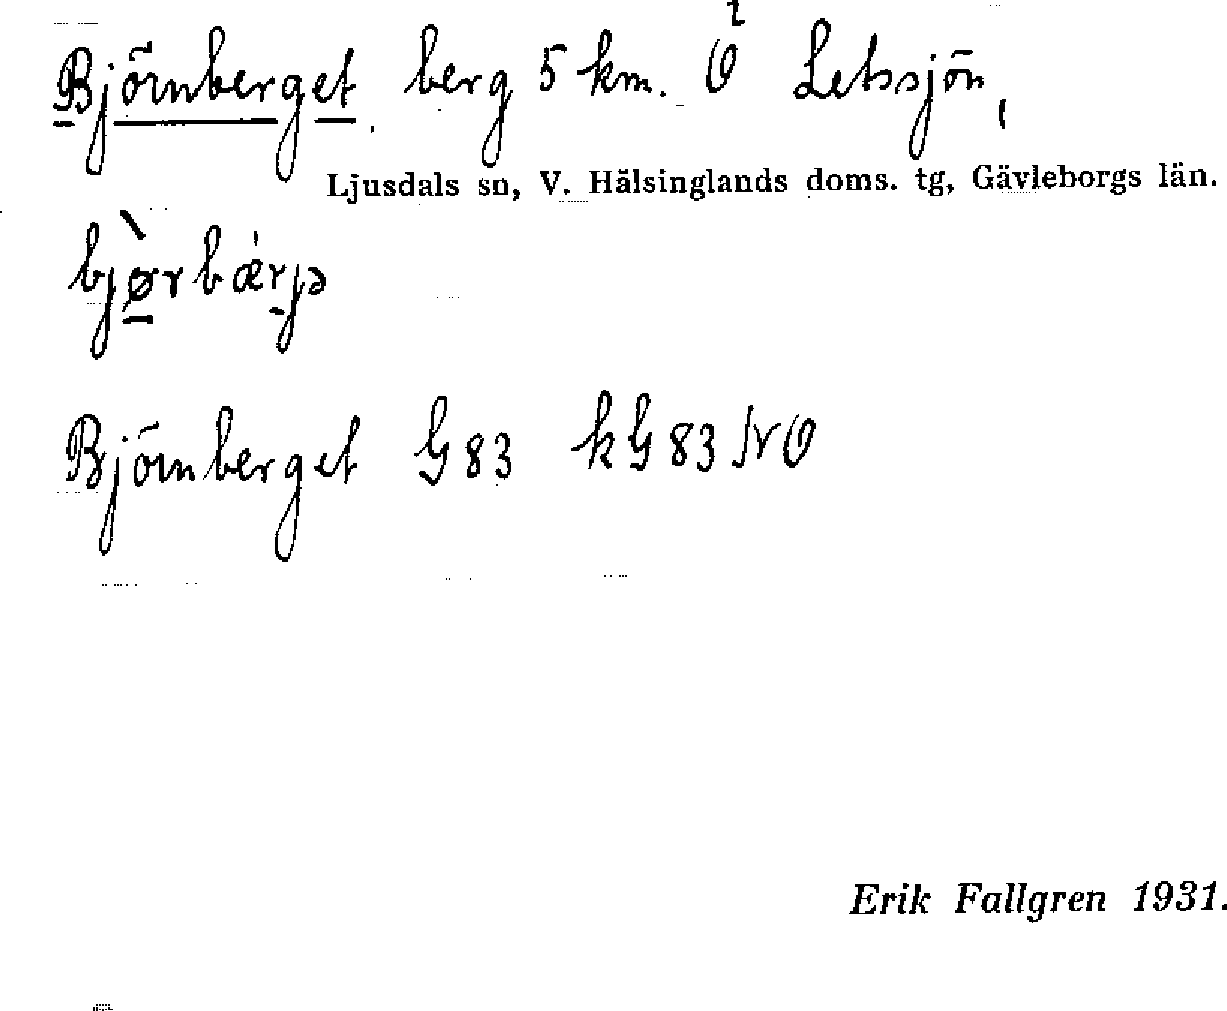 Björnberget, berg 5 km. O Letssjön,
Ljusdals sn, V. Hälsinglands doms. tg, Gävleborgs län.
bjø̀rbæ̍rjə
Björnberget G83 kG83NO
Erik Fallgren 1931.